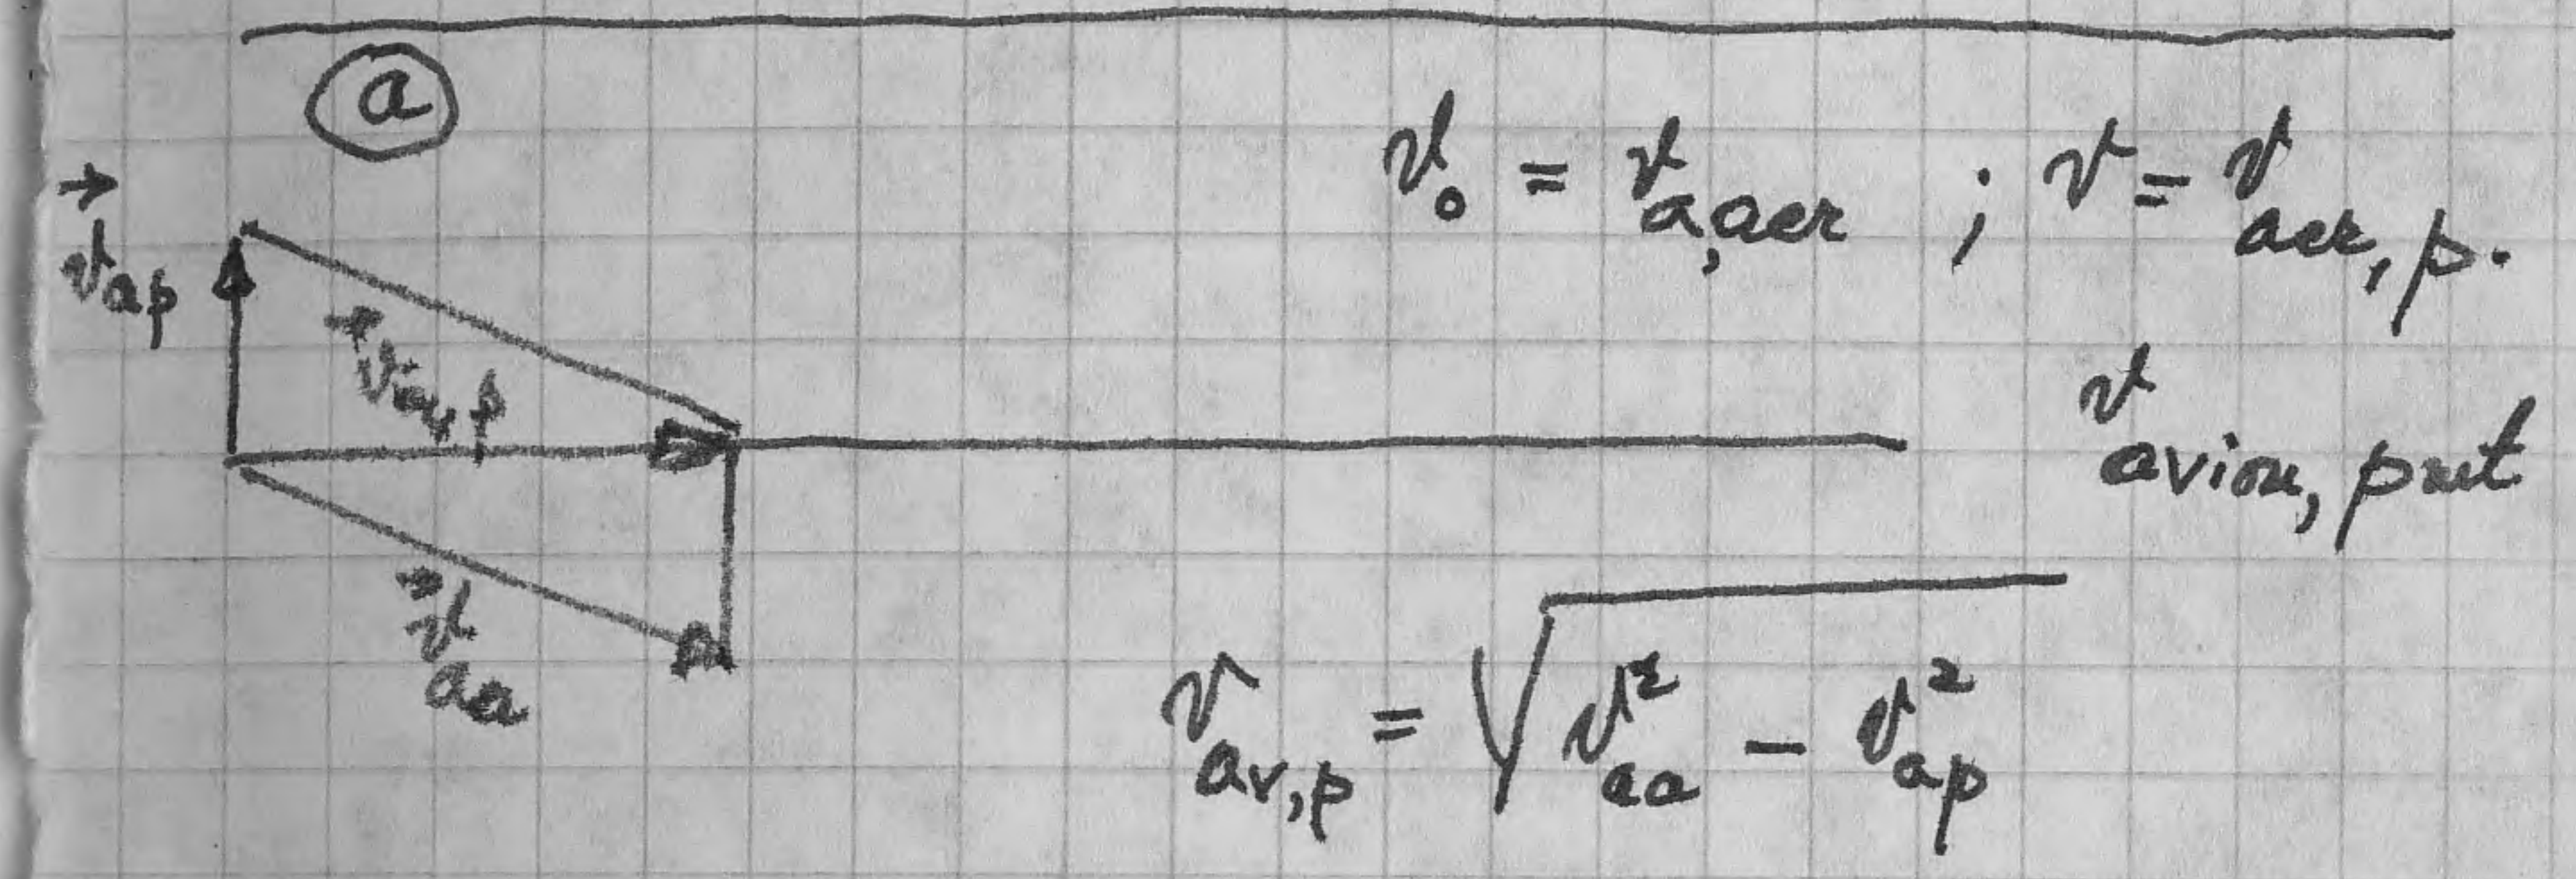 a
v₀ = v a,aer ; v = v aer, p.
v⃗ ap
v⃗ av, p
v avion, pmt
v⃗ aa
v av,p = √(v² aa − v² ap)